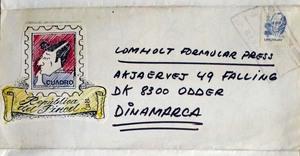 CUADRO
República
del Pincel
LOMHOLT FORMULAR PRESS
AKJAERVEJ 49 FALLING
DK 8300 ODDER
DINAMARCA